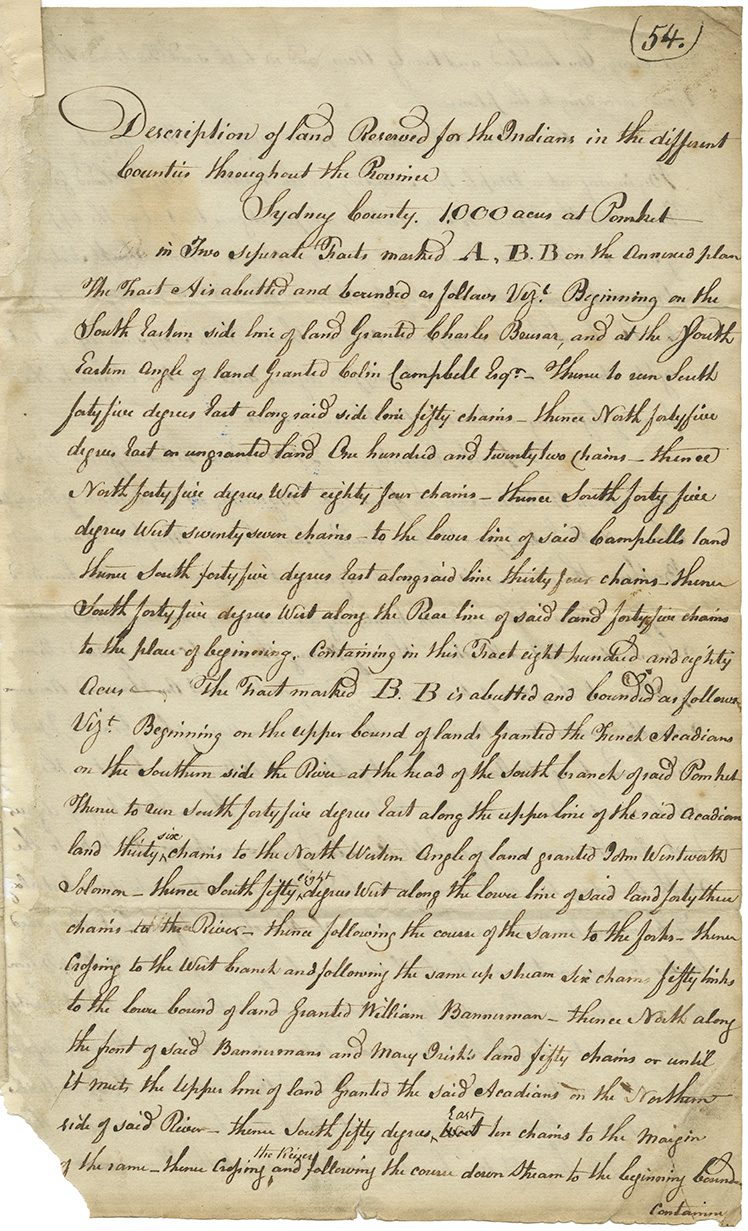 (54.)
Description of land Reserved for the Indians in the different
Counties throughout the Province
Sydney County. 1,000 acres at Pomket
in Two seperate Tracts marked A, B.B on the Annexed plan
The Tract A is abutted and bounded as follows Vizt. Beginning on the
South Eastern side line of land Granted Charles Bousar, and at the South
Eastern Angle of land Granted Colin Campbell Esqr. – Thence to run South
forty five degrees East along said side line fifty chains – thence North forty five
degrees East on ungranted land One hundred and twenty two Chains – thence
North forty five degrees West eighty four chains – thence South forty five
degrees West seventy seven chains – to the lower line of said Campbells land
thence South forty five degrees East along said line thirty four chains – thence
South forty five degrees West along the Rear line of said land forty five chains
to the place of beginning. Containing in this Tract eight hundred and eighty
Acres – The Tract marked B. B is abutted and bounded as follows
Vizt. Beginning on the upper bound of lands Granted the French Acadians
on the Southern side the River at the head of the South branch of said Pomket
Thence to run South forty five degrees East along the upper line of the said Acadian
land thirty six chains to the North Western Angle of land granted John Wentworth
Solomon – thence South fifty eight degrees West along the lower line of said land forty three
chains to the River – thence following the course of the same to the forks – thence
Crossing to the West branch and following the same up stream six chains fifty links
to the lower bound of land Granted William Bannerman – thence North along
the front of said Bannermans and Mary Irish's land fifty chains or until
it meets the Upper line of land Granted the said Acadians on the Northern
side of said River – thence South fifty degrees West East ten chains to the Margin
of the same – thence Crossing the River and following the course down Stream to the beginning bound
Containing